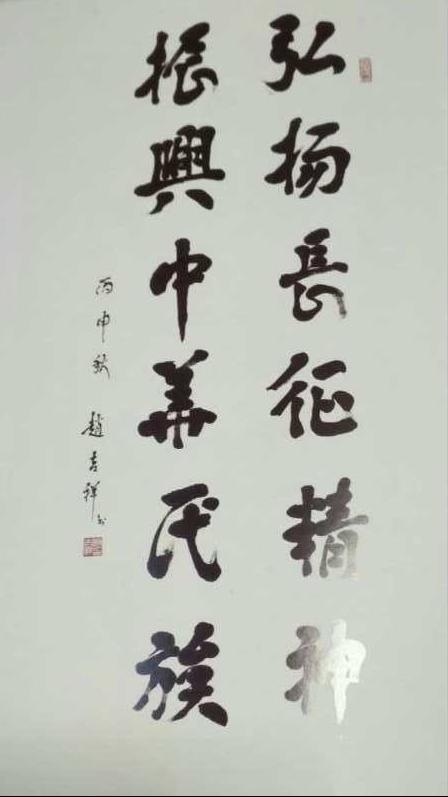 弘扬長征精神
振興中華民族
丙申秋 趙吉祥书